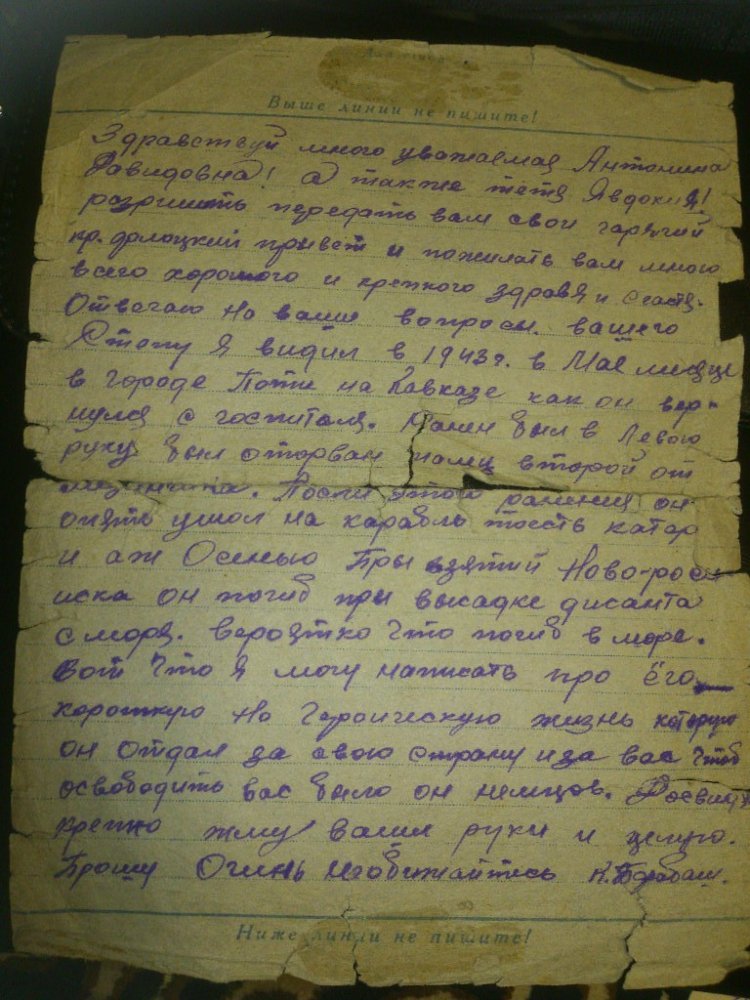 Выше линии не пишите!
Здравствуй много уважаемая Антонина
Давидовна! а также тётя Явдокия!
разришить передать вам свой гарячий
кр. флоцкий привет и пожилать вам много
всего хорошого и крепкого здравя и счастя.
Отвечаю на ваши вопросы. вашего
Стопу я видил в 1943 г. в Мае месяце
в городе Поти на Кавказе как он вер-
нулся с госпиталя. Ранен был в Левою
руку был оторван палец второй от
мизинчика. Посли этого ранения он
опять ушол на карабль тоесть катер
и аж Осенью При взятий Ново-роси
иска он погиб при высадке дисанта
с моря. вероятко что погиб в море.
Вот Что я могу написать про его
короткую но Героическую жизнь которую
он отдал за свою страну и за вас чтоб
освободить вас было он немцов. Досвид
крепко жму ваши руки и целую.
Прошу Очинь необижайтись К.
Ниже линии не пишите!